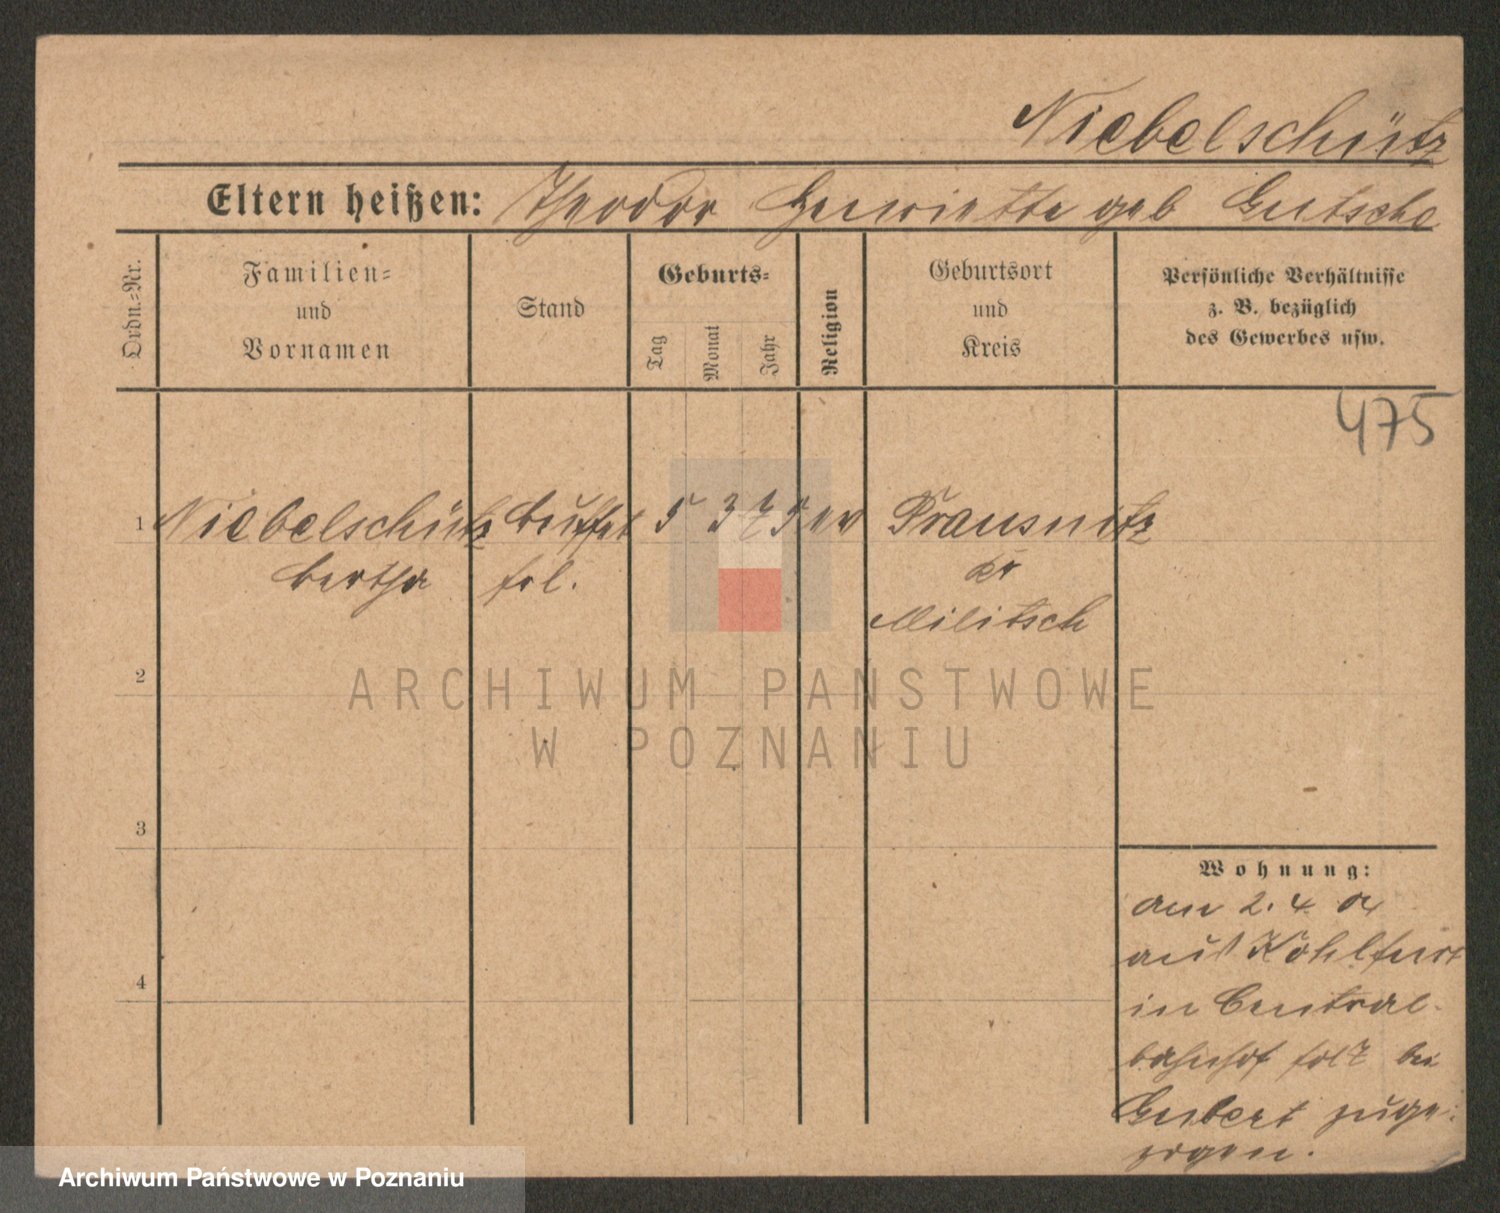 Niebelschütz
Eltern heißen: Theodor Henriette geb Gutsche
Ordn.-Nr.
Familien-
und
Vornamen
Stand
Geburts-
Tag
Monat
Jahr
Religion
Geburtsort
und
Kreis
Persönliche Verhältnisse
z. B. bezüglich
des Gewerbes usw.
475
1 Niebelschütz Buffet 5 3 75 ev Prausnitz
Bertha frl. Kr
Militsch
2
3
4
Wohnung:
am 2. 4 04
aus Kohlfurt
in Central-
bahnhof bei
zuge-
zogen.
ARCHIWUM PAŃSTWOWE
W POZNANIU
Archiwum Państwowe w Poznaniu